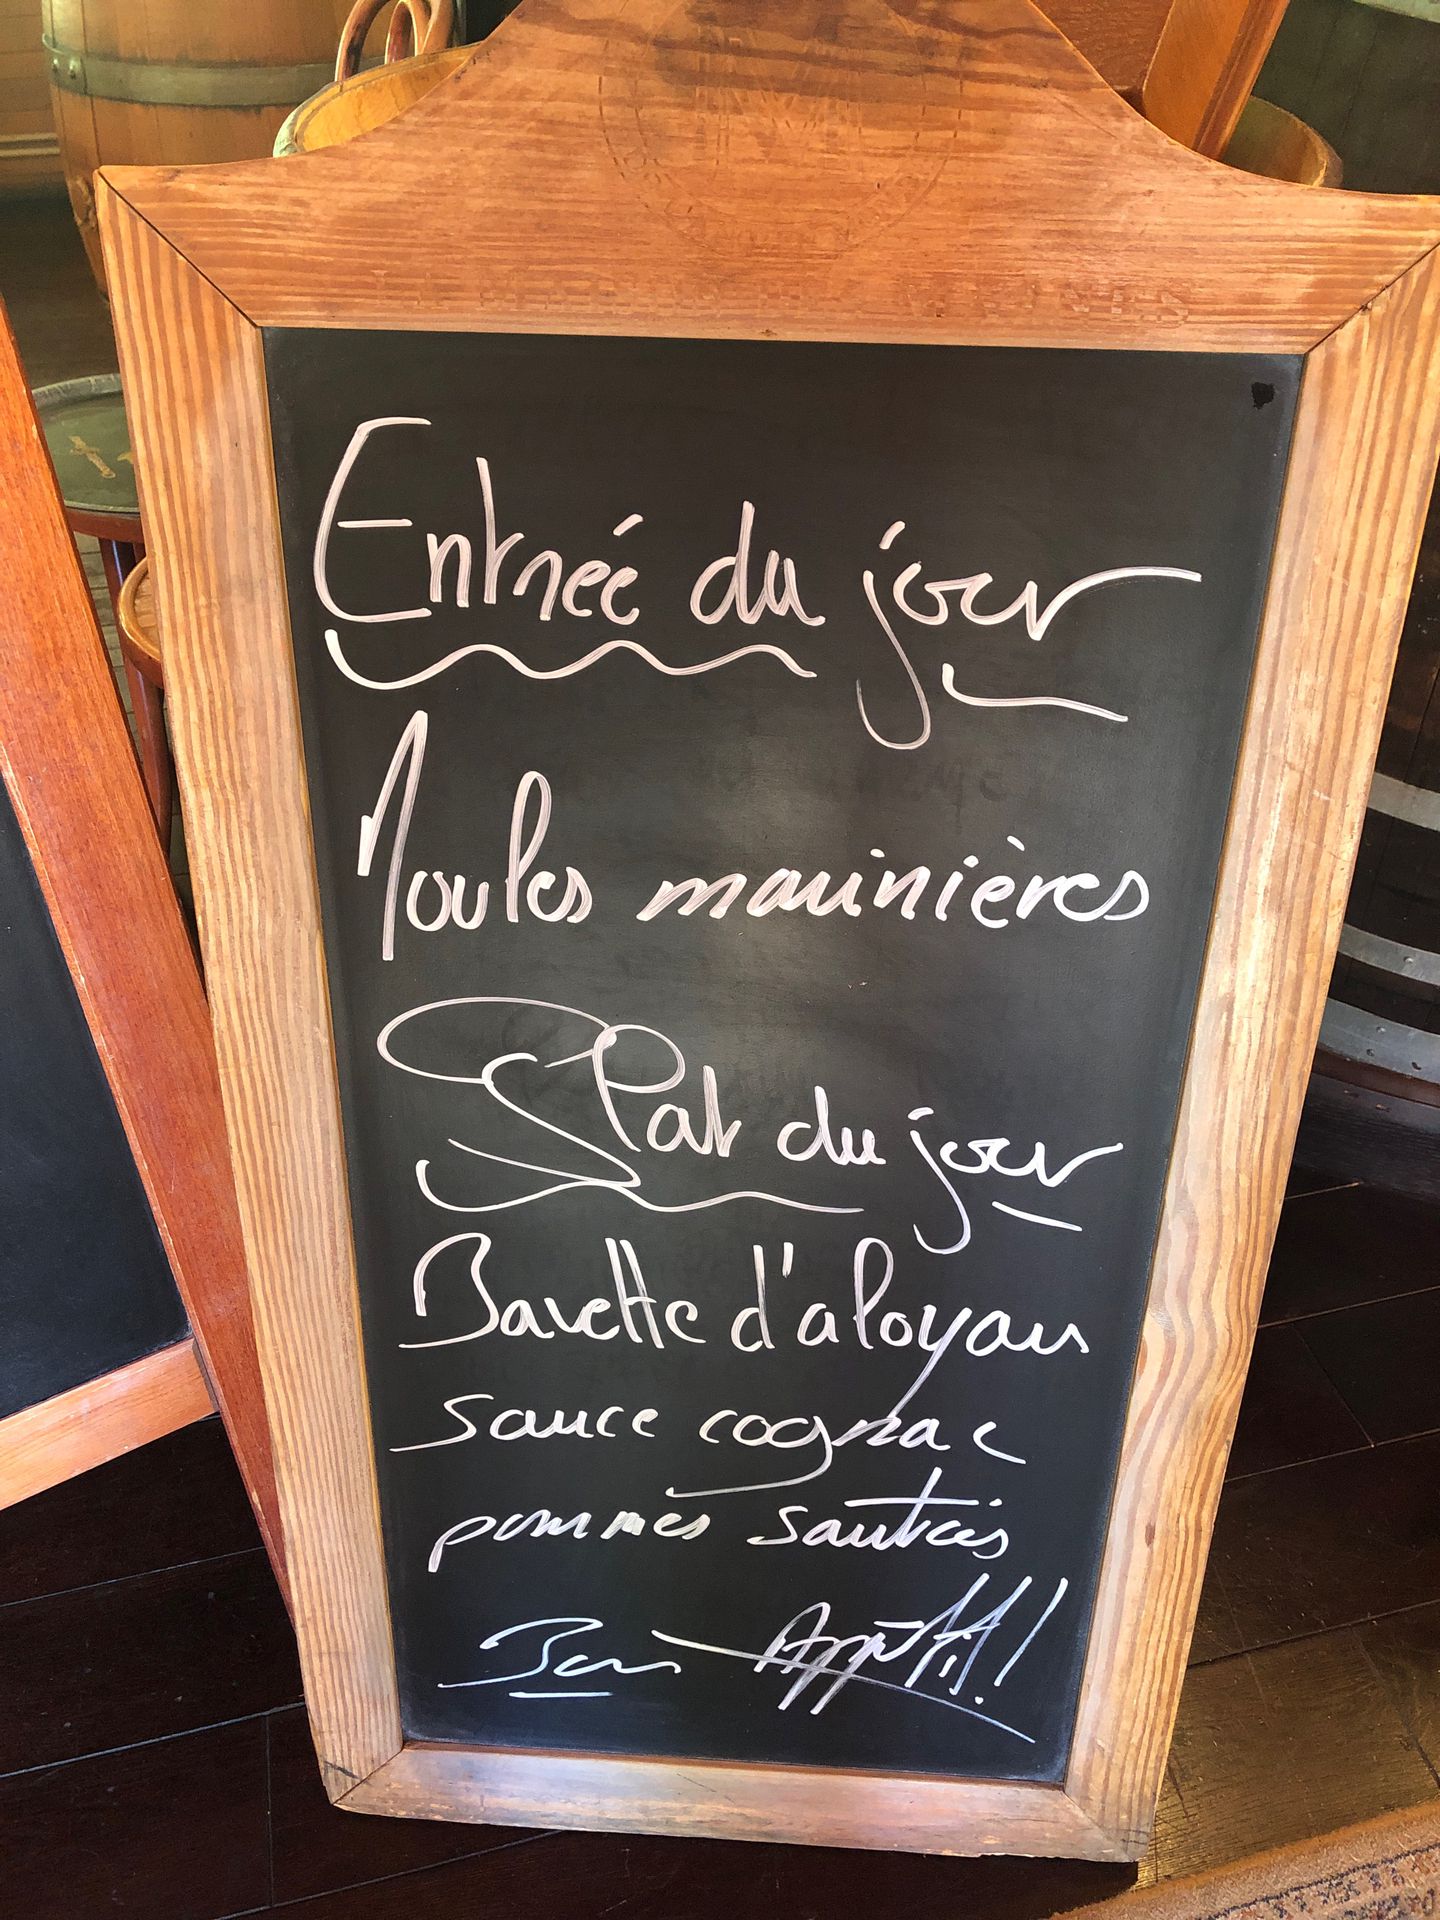 Entrée du jour
Moules marinières
Plat du jour
Bavette d'aloyau
sauce cognac
pommes sautées
Bon Appétit!!